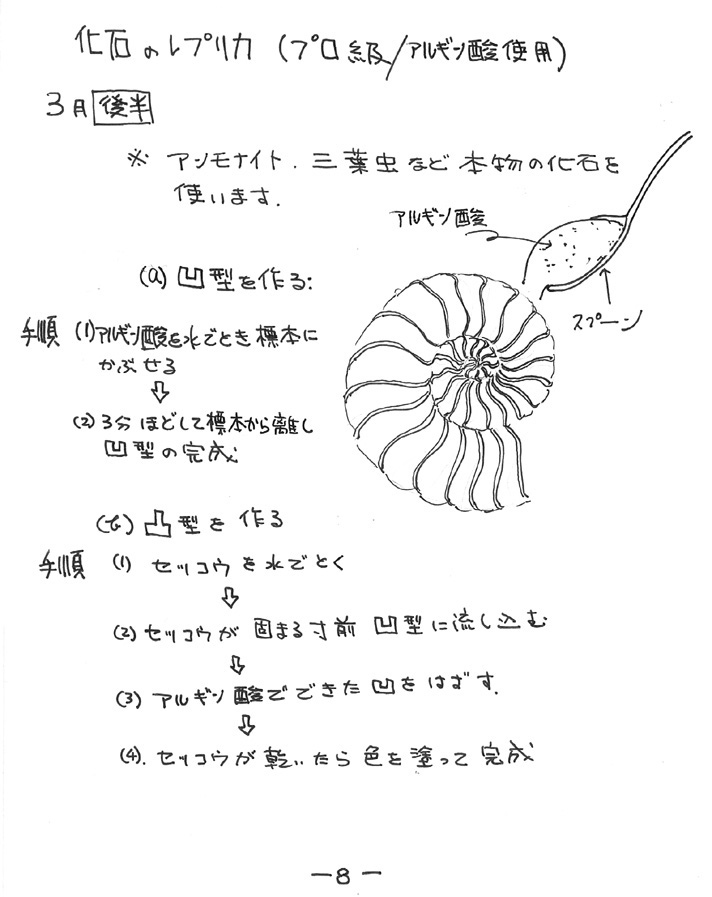 化石のレプリカ (プロ級/アルギン酸使用)
3月 後半
※ アンモナイト.三葉虫など本物の化石を
使います.
アルギン酸
スプーン
(a) 凹型を作る:
手順 (1)アルギン酸を水でとき標本に
かぶせる
⇩
(2) 3分ほどして標本から離し
凹型の完成
(b) 凸型を作る
手順 (1) セッコウを水でとく
⇩
(2) セッコウが固まる寸前 凹型に流し込む
⇩
(3) アルギン酸でできた凹をはずす.
⇩
(4). セッコウが乾いたら色を塗って完成
ー8ー